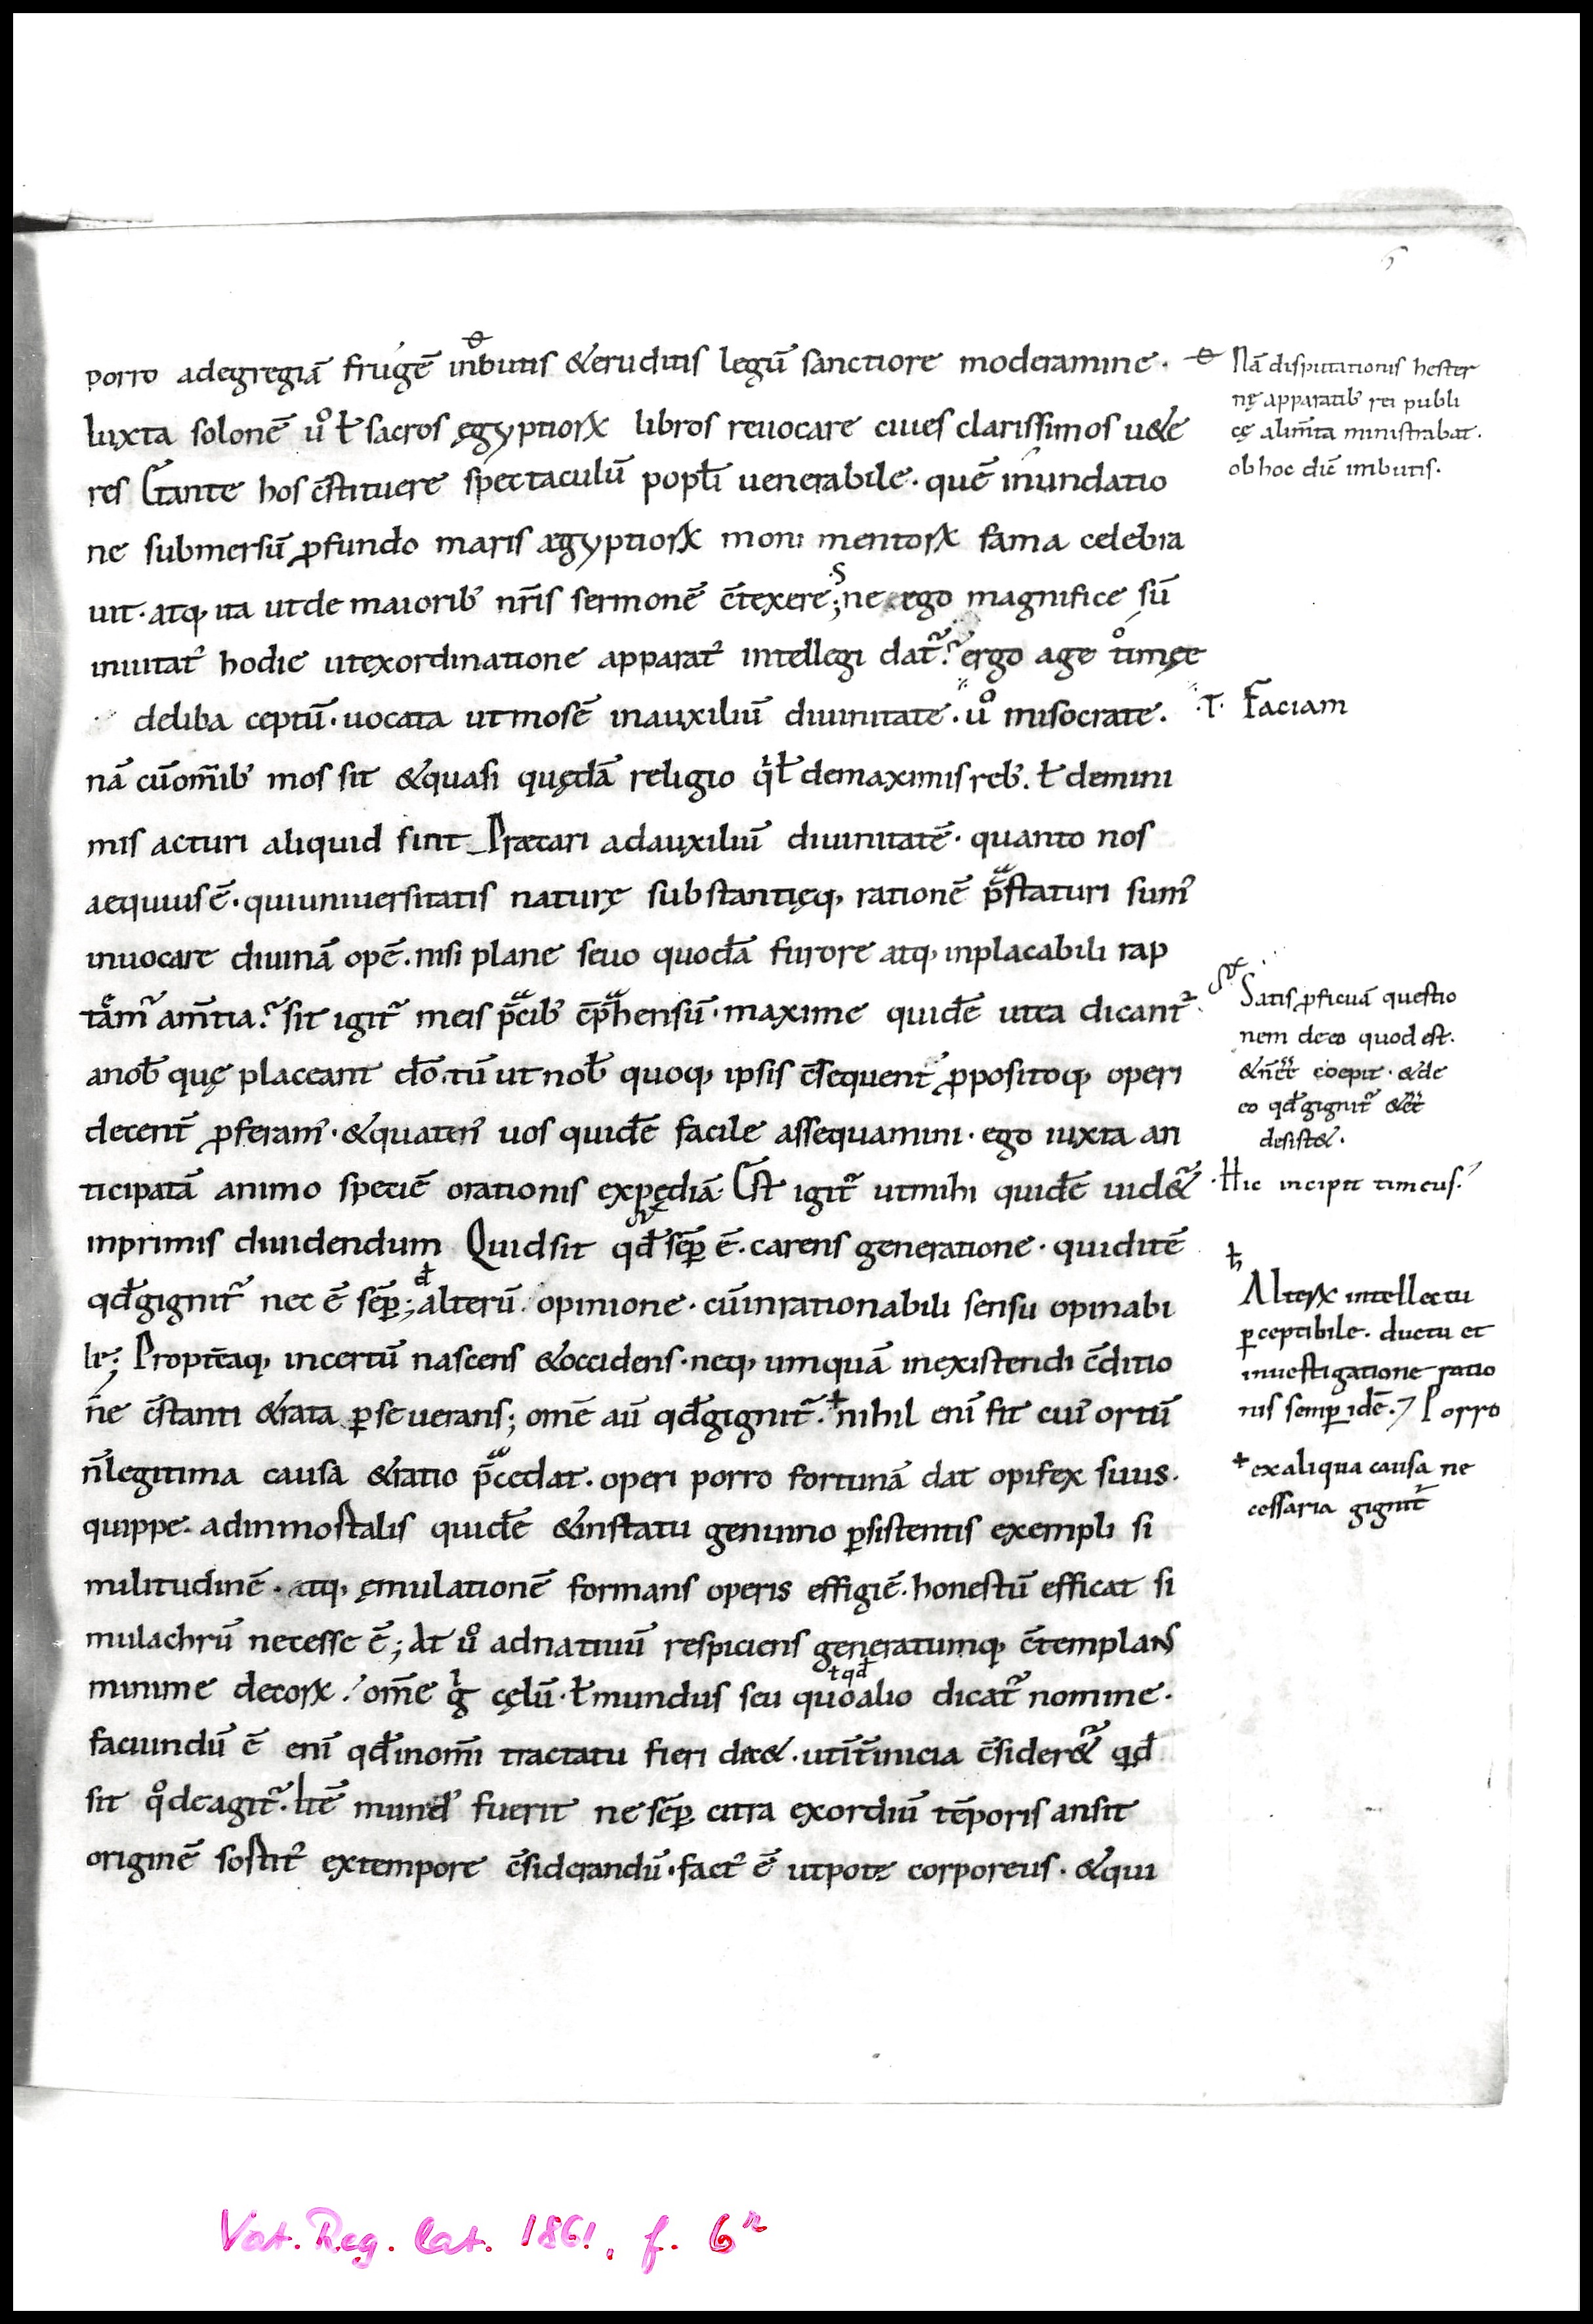 porro adegregiā frugē inbutis &eruditis legū sanctiore moderamine·
Iuxta solonē ủo ł sacros ęgyptioꝝ libros reuocare ciues clarissimos u&e
res hos c̄stituere spectaculū popłi uenerabile· quē inundatio
ne submersū ꝓfundo maris ægyptioꝝ moni mentoꝝ fama celebra
uit· atq; ita utde maiorib; nr̄is sermonē c̄texere; ne ego magnifice sū
inuitatꝰ hodie utexordinatione apparatꝰ intellegi dat᷑. ergo age o timęe
deliba ceptū· uocata utmosē inauxiliū diuinitate· uͦ misocrate.
nā cūom̄ib; mos sit &quasi quędā religio qͥ ł demaximis reb;. ł demini
mis acturi aliquid sint Præcari adauxiliū diuinitatē· quanto nos
aequius ē· quiuniuersitatis naturę substantięq; rationē p̄staturi sumꝰ
inuocare diuinā opē. nisi plane seuo quodā furore atq; inplacabili rap
tam᷑ am̄tia. sit igit᷑ meis p̄cib; c̄p̄hensū· maxime quidē utea dicant᷑
anob̄ quę placeant dō. tū ut nob̄ quoq; ipsis c̄sequent᷑ ꝓpositoq; operi
decent᷑ ꝓferamꝰ· &quatenꝰ uos quidē facile assequamini· ego iuxta an
ticipatā animo speciē orationis expędiā· Est igit᷑ utmihi quidē uid&᷑
inprimis diuidendum Quidsit qđ sēp ē· carens generatione· quiditē
qđ gignit᷑ nec ē sēp; alterū opinione· cūinrationabili sensu opinabi
le; Propt̄eaq; incertū nascens &occidens· neq; umquā inexistendi c̄ditio
ne c̄stanti &rata ꝑseuerans; om̄e aū qđ gignit᷑. nihil enī fit cuiꝰ ortū
n̄ legitima causa &ratio p̄cedat· operi porro fortunā dat opifex suus·
quippe· adinmortalis quidē &instatu genuino ꝑsistentis exempli si
militudinē· atq; ęmulationē formans operis effigiē· honestū efficat si
mulachrū necesse ē; At uͦ adnatiuū respiciens generatumq; c̄templans
minime decoꝝ. om̄e gͥ cęlū· ł mundus seu quoalio dicat᷑ nomine·
ł qđ
faciundū ē enī qđ inom̄i tractatu fieri dec&· utīt̄inicia c̄sider&᷑ qđ
sit qͦ deagit᷑. Itē mundꝰ fuerit ne sēp citra exordiū tēporis ansit
originē sortitꝰ extempore c̄siderandū· factꝰ ē utpote corporeus· &qui
Nā disputationis hester
nę apparatib; rei publi
cę alim̄ta ministrabat·
ob hoc diē imbutis·
·T· Faciam
Satis ꝓficuā questio
nem deeo quod est·
&n̄ coepit· &de
eo qđ gignit᷑
desist&·
·Hic incipit timeus.
Alteꝝ intellectu
ꝑceptibile· ductu et
inuestigatione ratio
nis semꝑ idē· Porro
+ exaliqua causa ne
cessaria gignit᷑
Vat. Reg. lat. 1861, f. 6ʳ